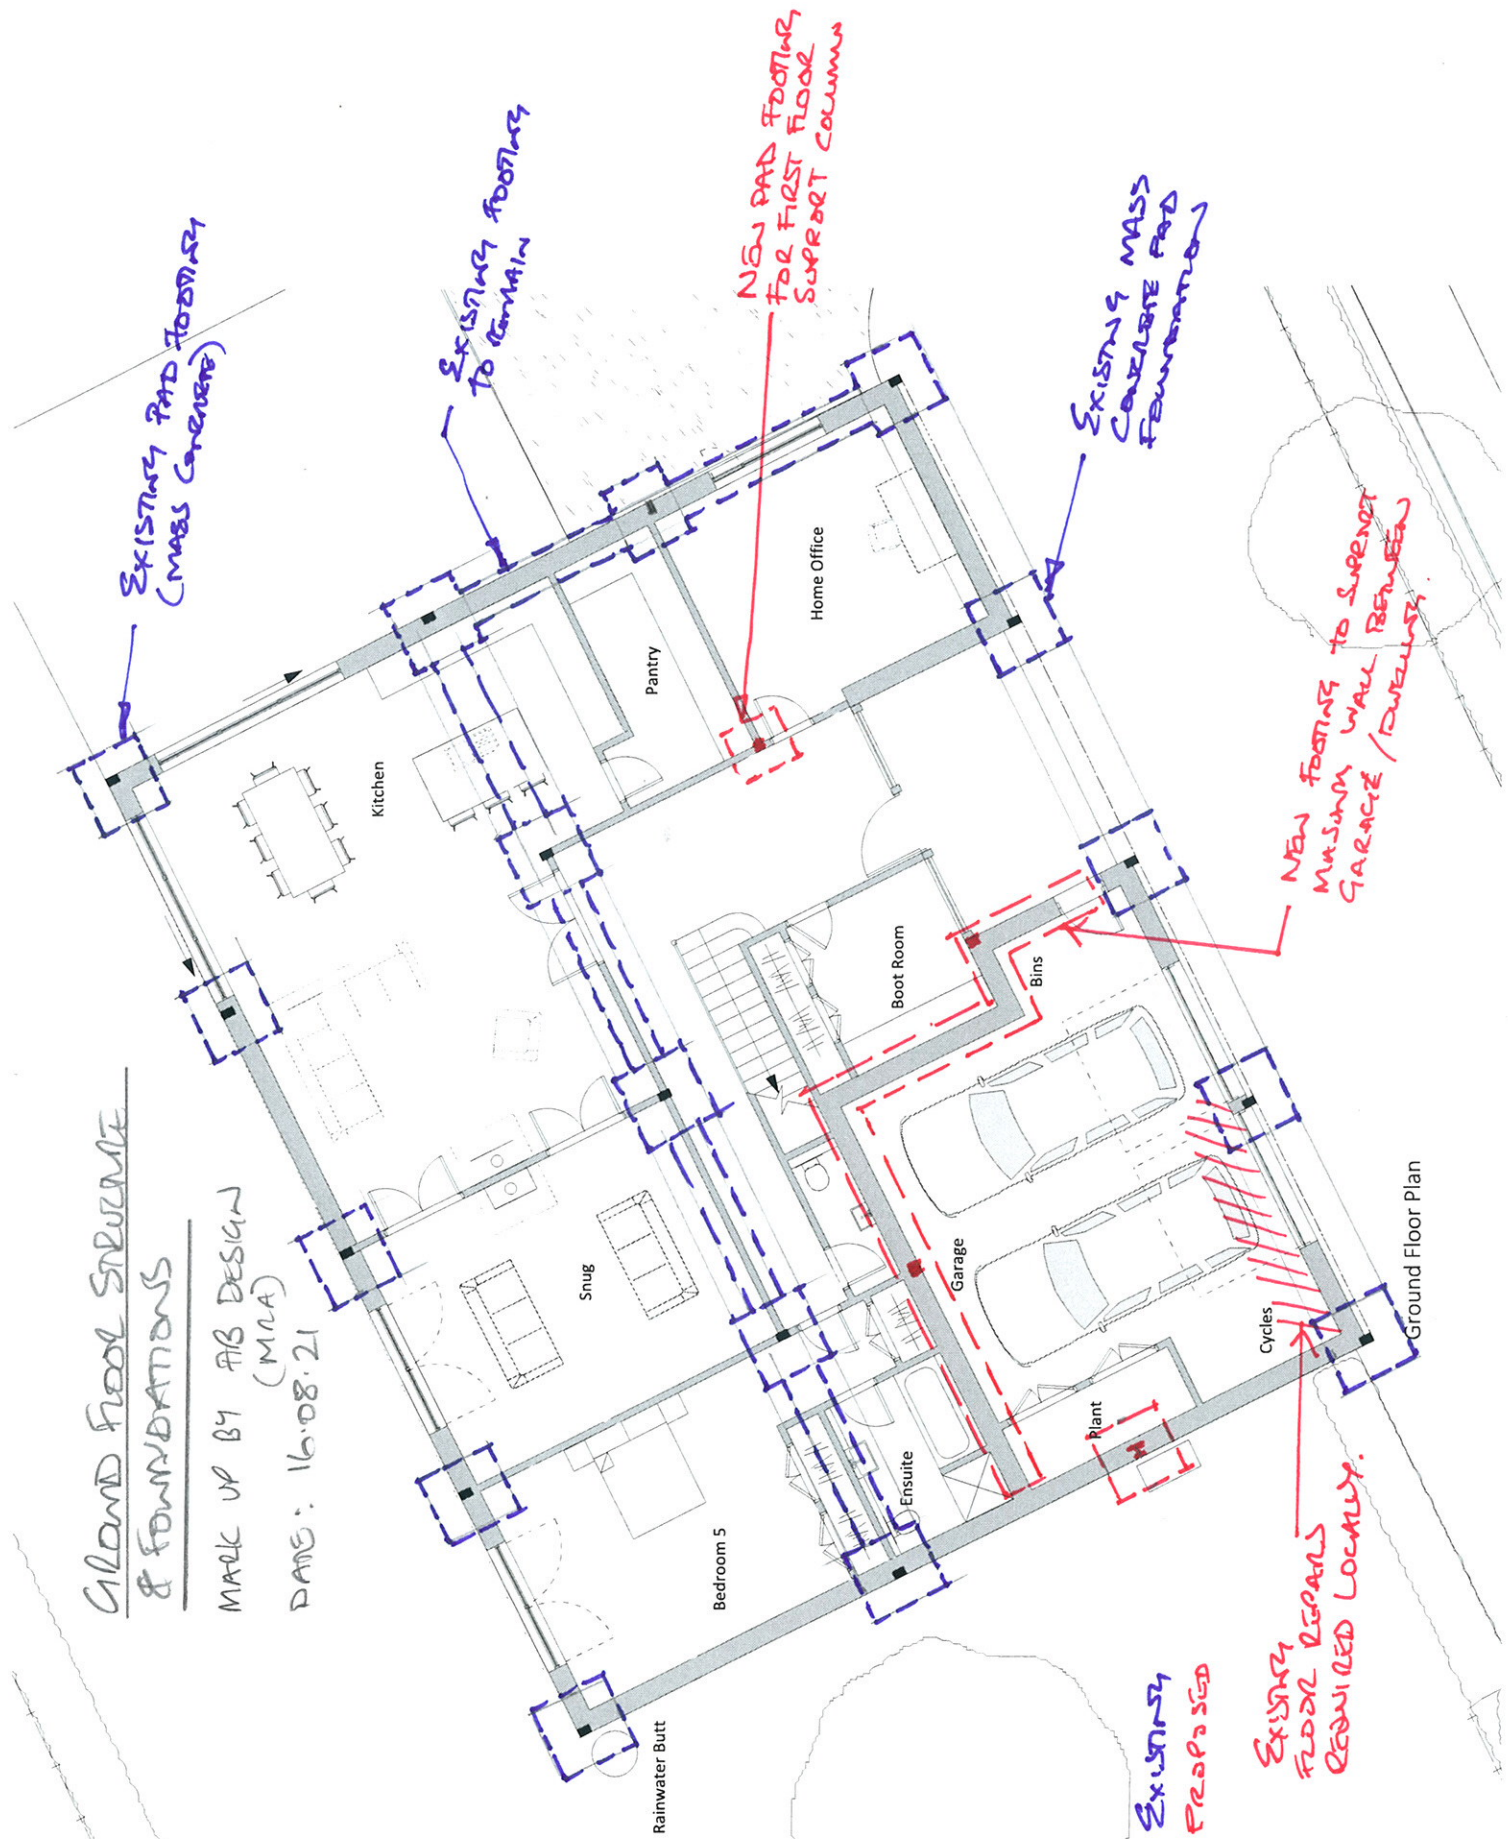 GROUND FLOOR STRUCTURE
& FOUNDATIONS
MARK UP BY AB DESIGN
(MRA)
DATE: 16.08.21
EXISTING PAD FOOTING
(MASS CONCRETE)
EXISTING FOOTING
TO REMAIN
NEW PAD FOOTING
FOR FIRST FLOOR
SUPPORT COLUMN
EXISTING MASS
CONCRETE PAD
FOUNDATION
NEW FOOTING TO SUPPORT
MASONRY WALL BETWEEN
GARAGE / DWELLING.
EXISTING
FLOOR REPAIRS
REQUIRED LOCALLY.
EXISTING
PROPOSED
Kitchen
Pantry
Home Office
Snug
Boot Room
Bins
Garage
Bedroom 5
Ensuite
Plant
Cycles
Rainwater Butt
Ground Floor Plan